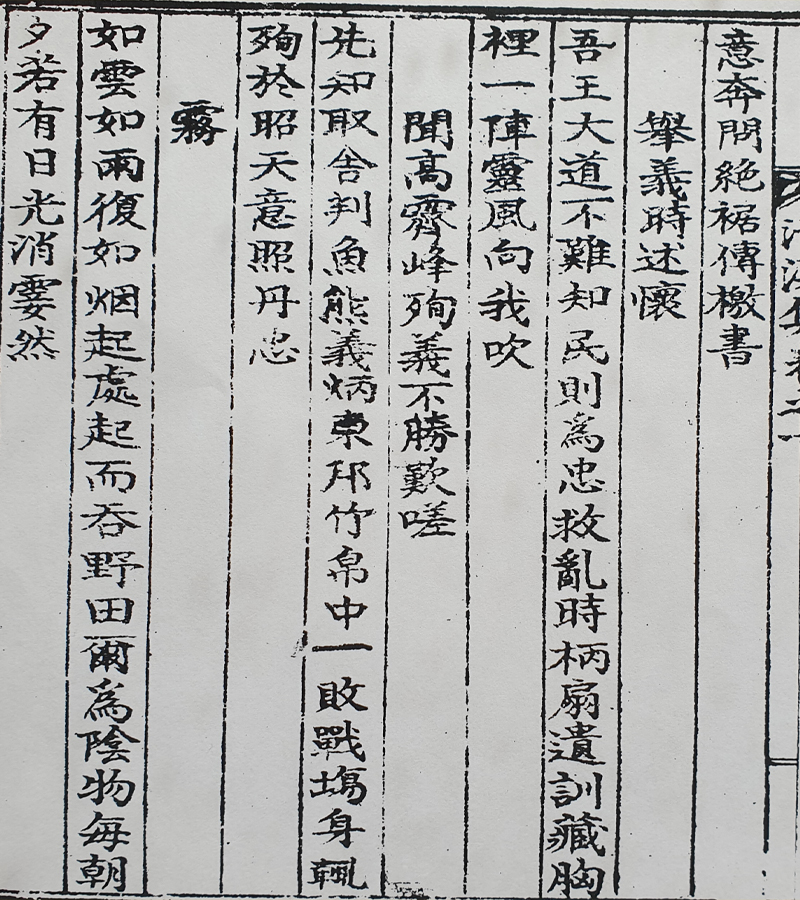 集卷之一
意奔問絶裾傳檄書
擧義時述懷
吾王大道不難知民則爲忠救亂時柄扇遺訓藏胸
裡一陣靈風向我吹
聞高霽峰殉義不勝歎嗟
先知取舍判魚熊義炳東邦竹帛中一敗戰塲身輒
殉於昭天意照丹忠
霧
如雲如雨復如烟起處起而呑野田爾爲陰物每朝
夕若有日光消霎然